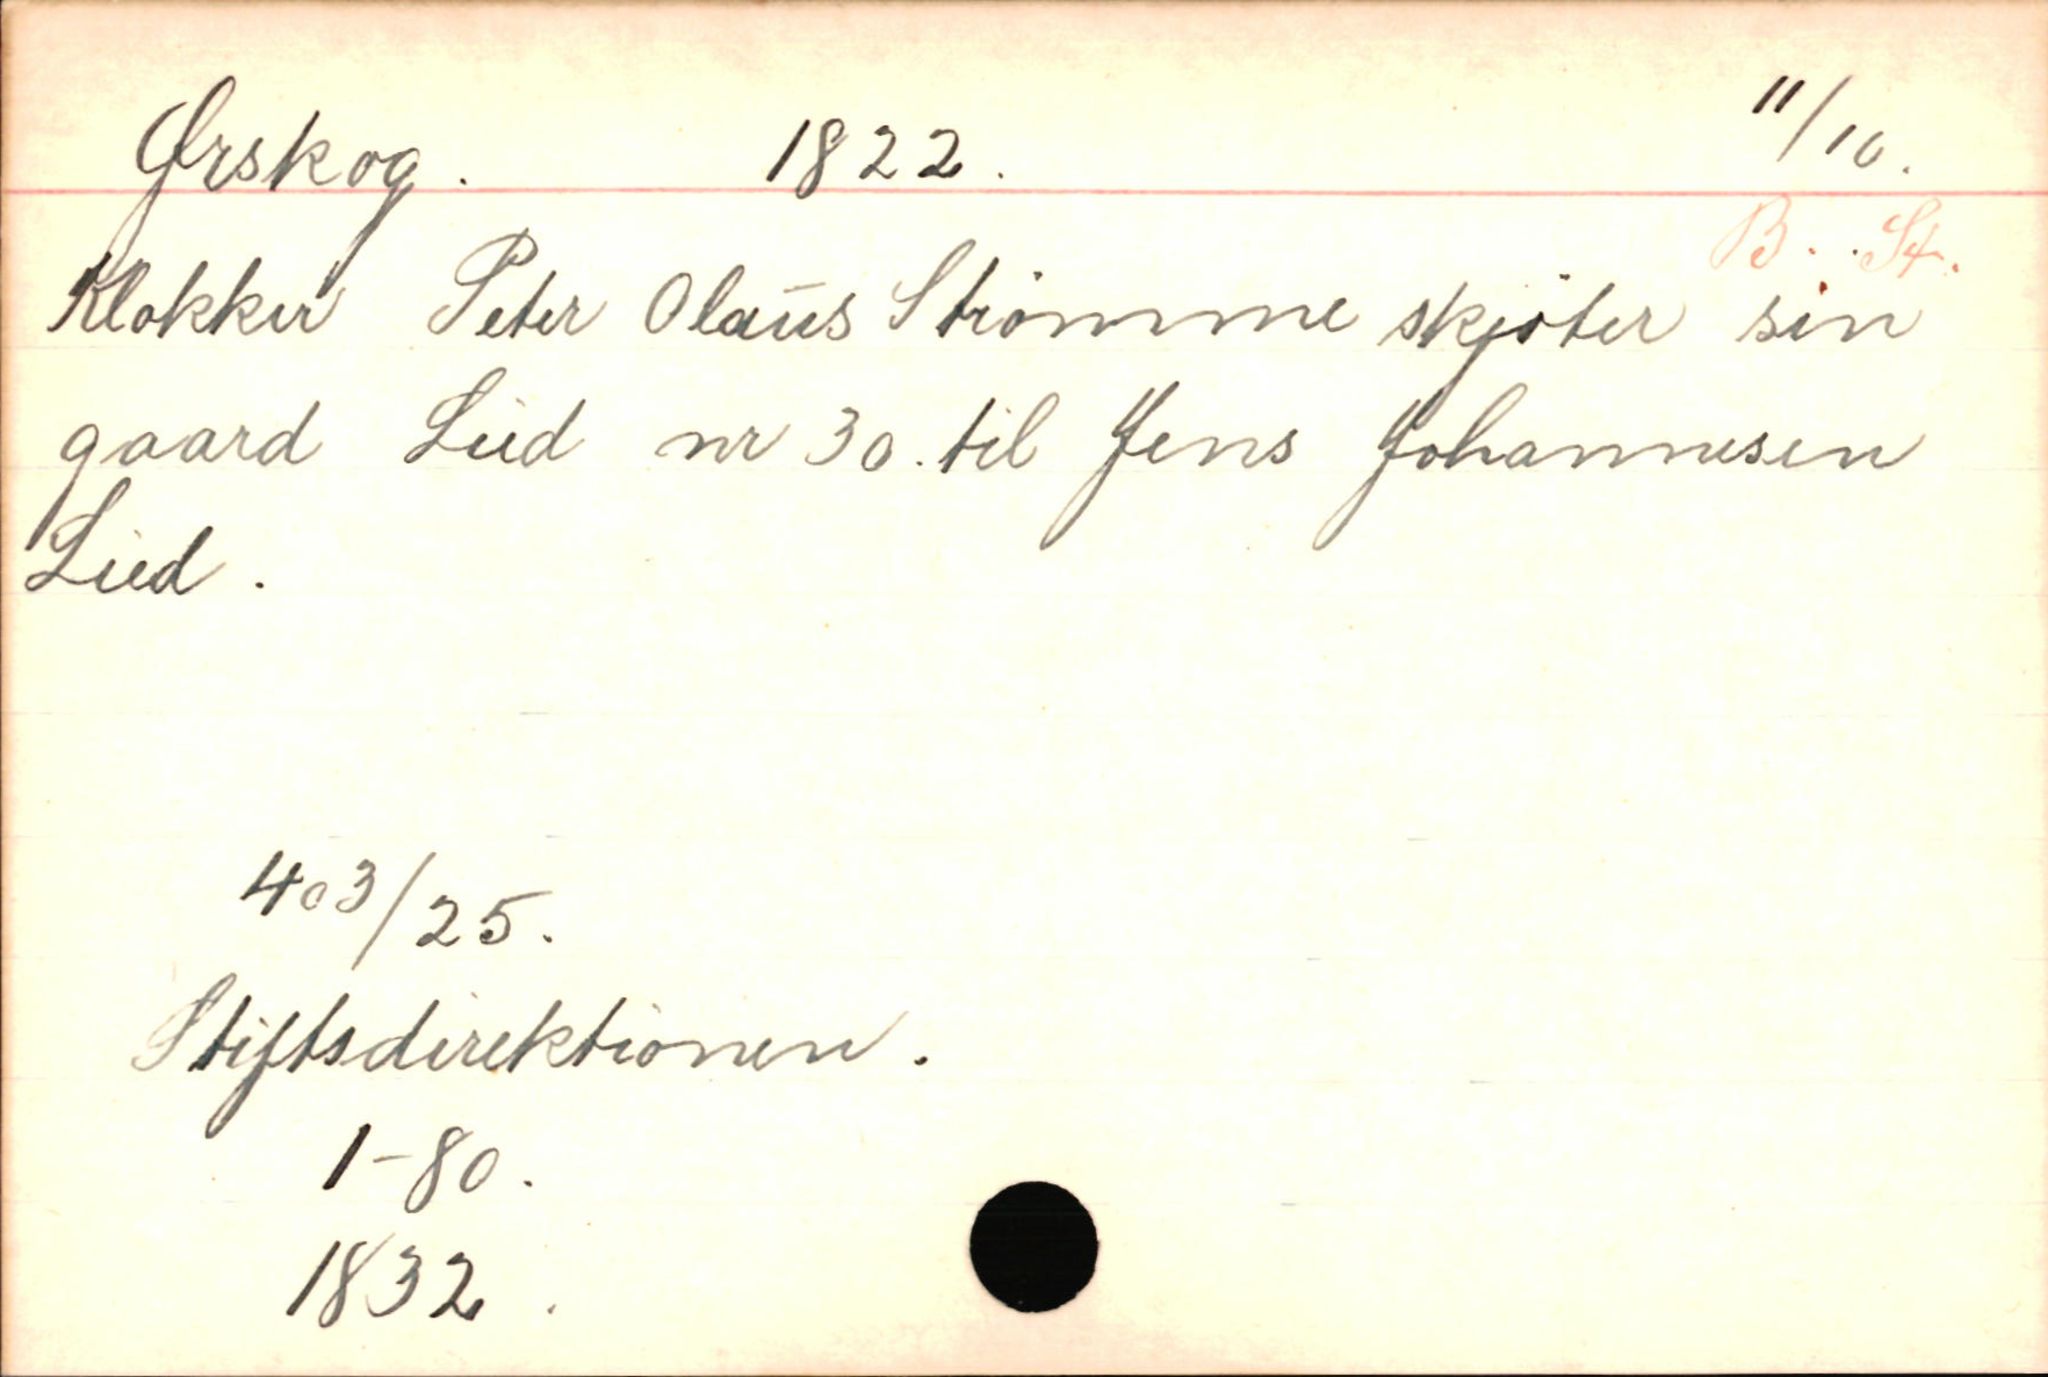 Ørskog. 1822. 11/10.
B. St.
Klokker Peter Olaus Strömme skjöter sin
gaard Lied nr 30. til Jens Johannesen
Lied.
403/25.
Stiftsdirektionen.
1-80.
1832.